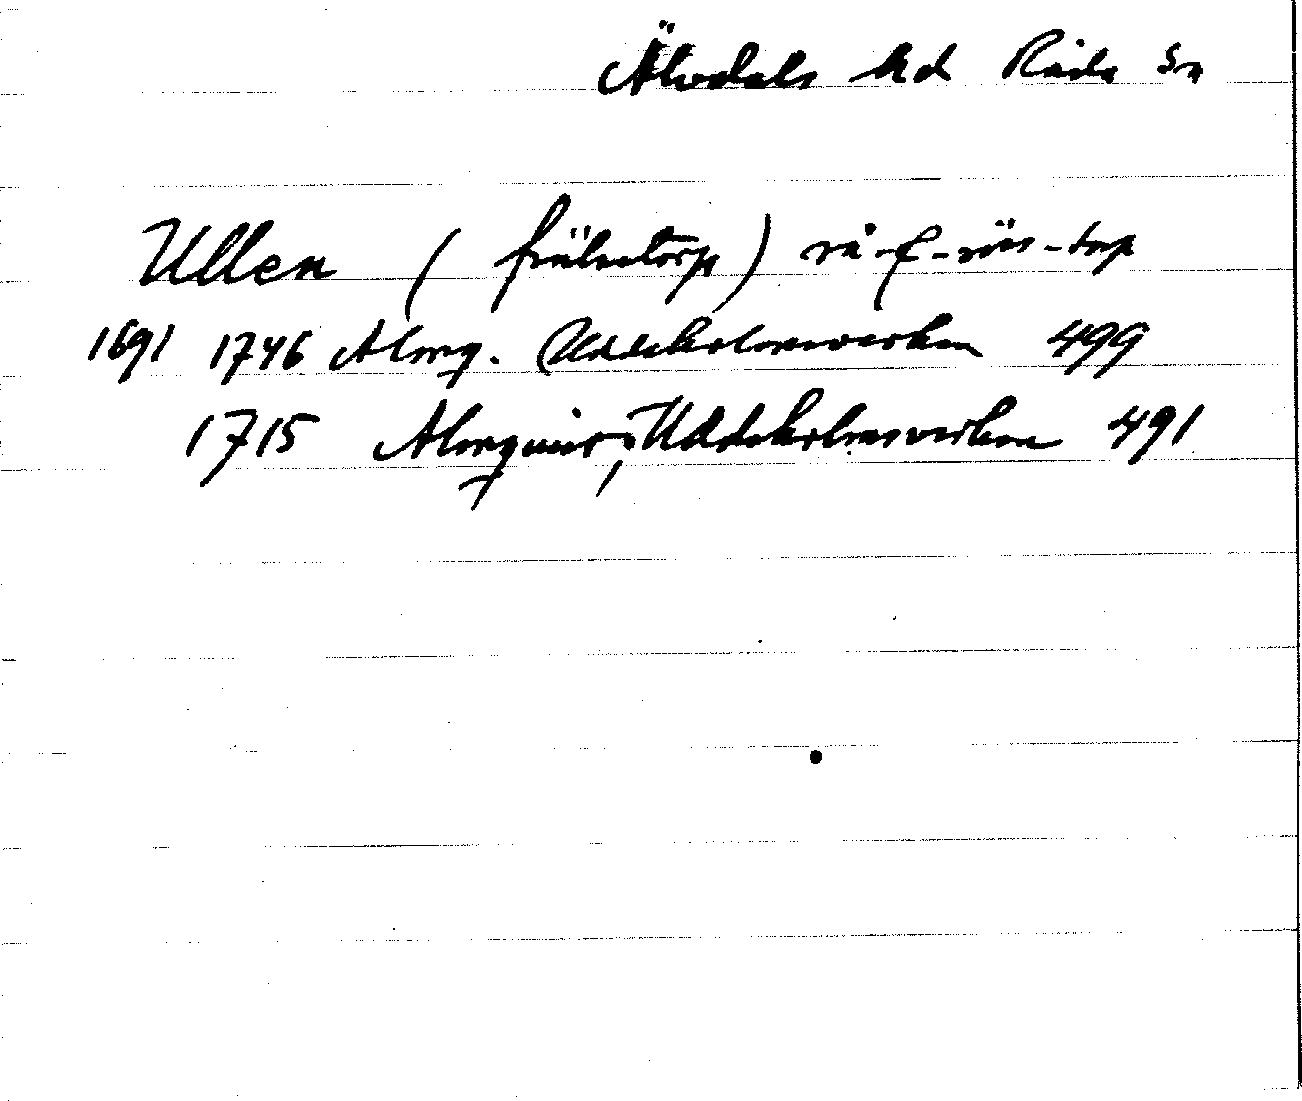 Älvdals hd Råda sn
Ullen (frälsetorp) rå-f-rörs-torp
1691 1746 Almq. Uddeholmsverken 499
1715 Almquist, Uddeholmsverken 491